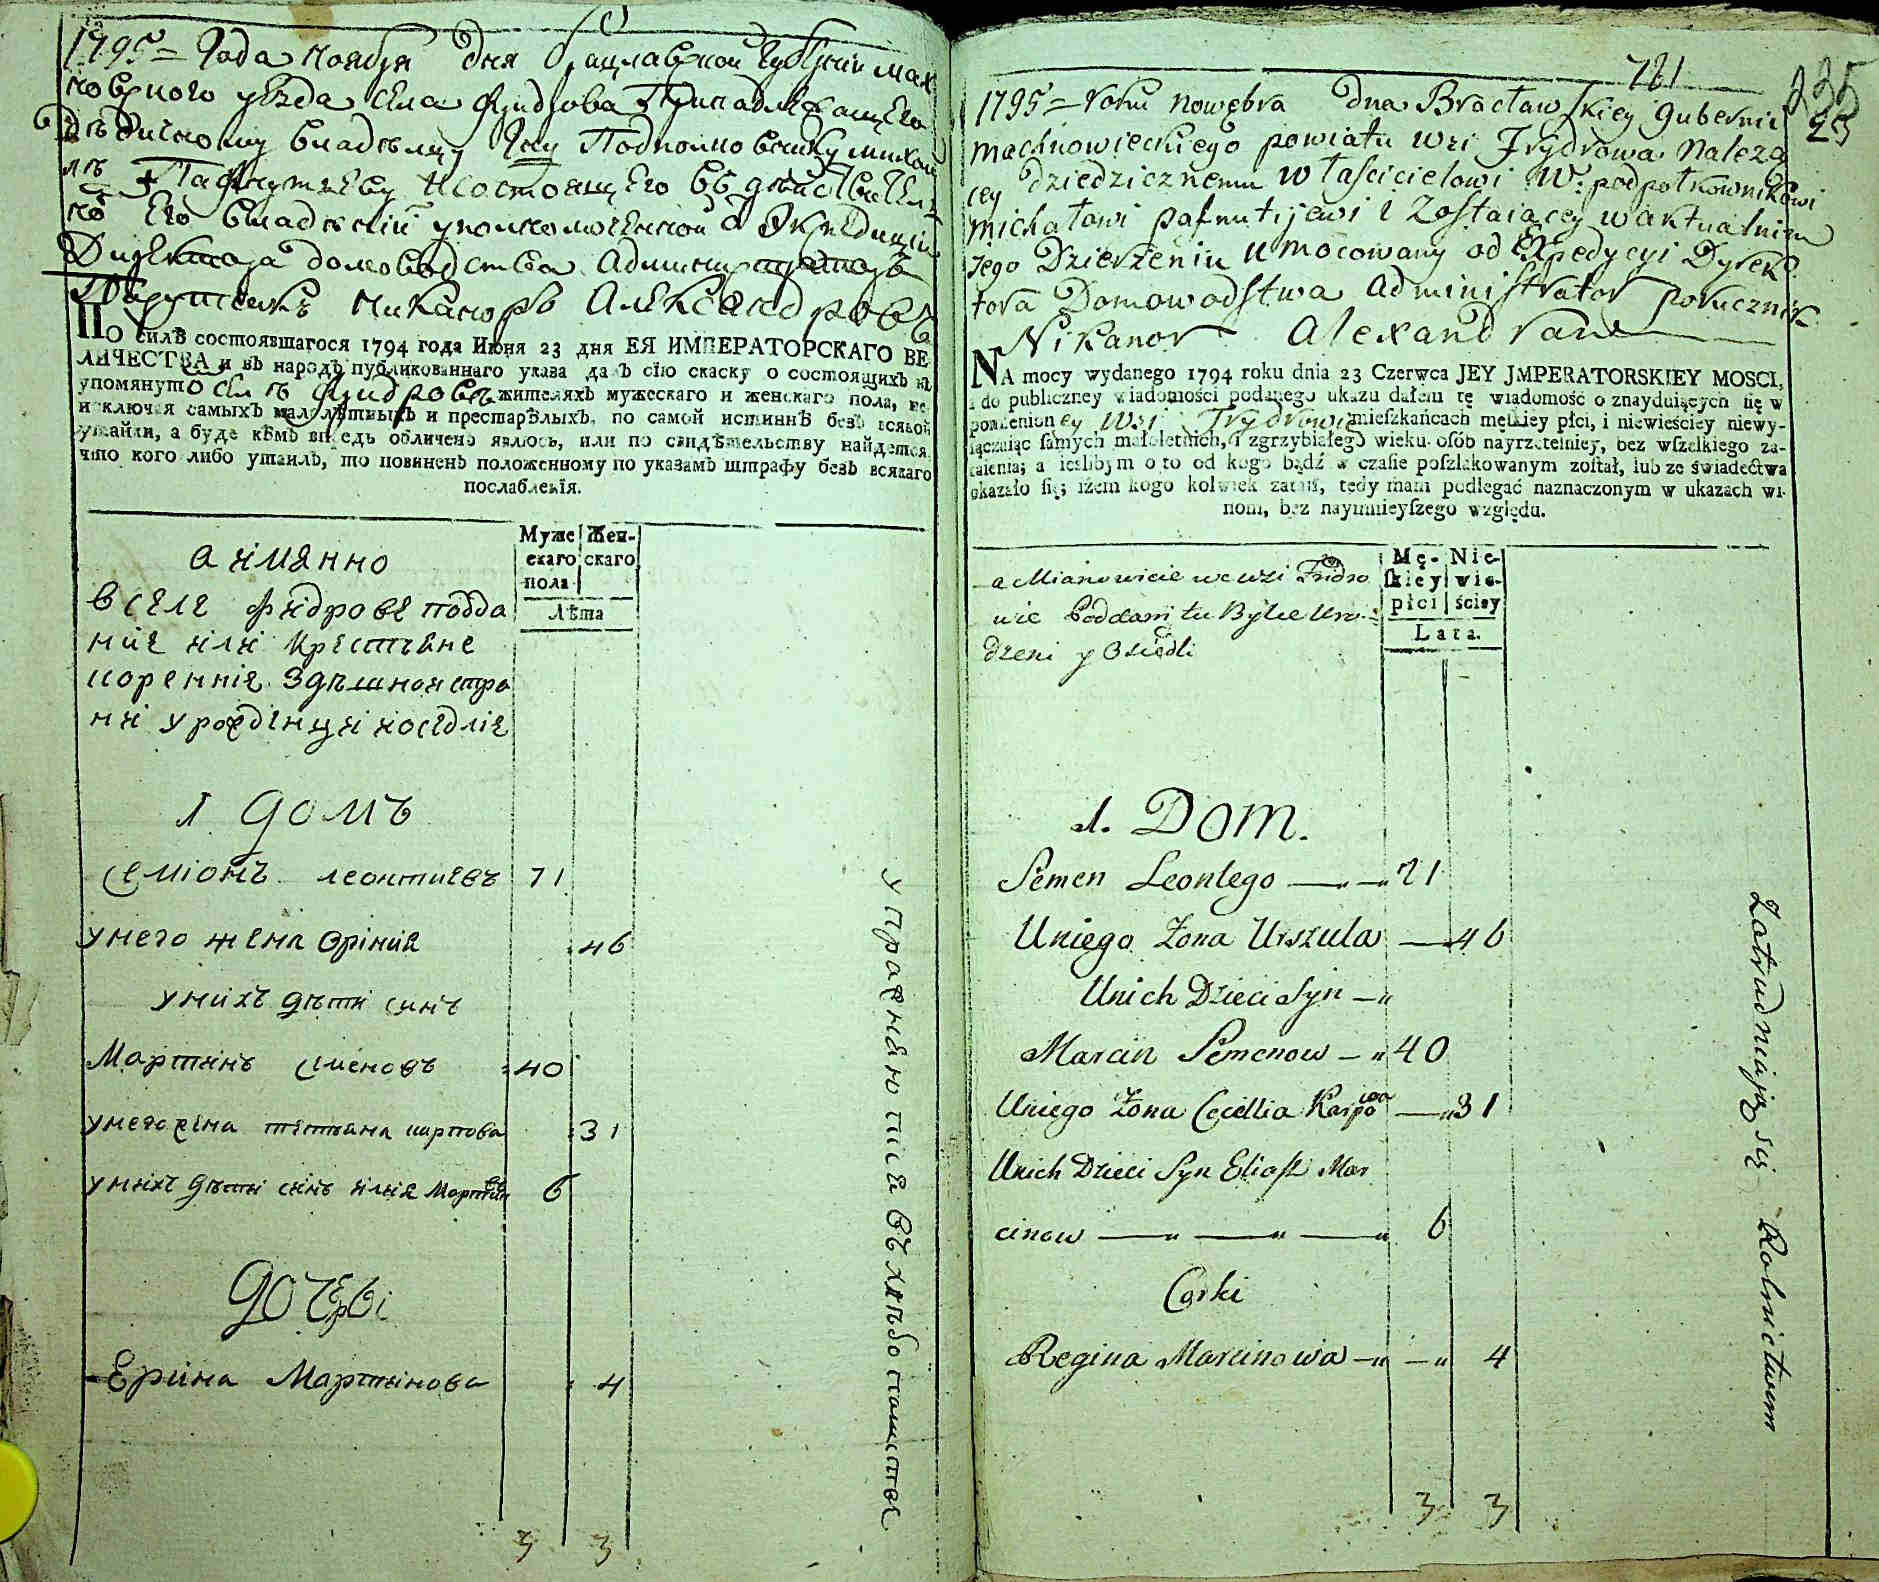 1795 = Года Ноября дня Брацлавской Губернии Мах
новского уезда села Фридрова Принадлежащего
его владений уполномоченной Экспедиции
Директора домоводства Администраторъ
Никаноръ Александровъ
ПО силѣ состоявшагося 1794 года Июня 23 дня ЕЯ ИМПЕРАТОРСКАГО ВЕ
ЛИЧЕСТВА и въ народъ публикованнаго указа далъ сїю скаску о состоящихъ въ
упомянуто селѣ Фидровѣ жителяхъ мужескаго и женскаго пола, не
исключая самыхъ малолѣтныхъ и престарѣлыхъ, по самой истиннѣ безъ всякой
утайки, а буде кѣмъ впредь обличенъ явлюсь, или по свидѣтельству найдется
что кого либо утаилъ, то повиненъ положенному по указамъ штрафу безъ всякаго
послабленїя.
Муже
скаго
пола
Жен-
скаго
Лѣта
а именно
в селе Фидрове подда
ние или крестьяне
коренние здѣшной сторо
ни уроединци и оседлие
1 домъ
Семионъ леонтиевъ 71
у него жена Орiния 46
у нихъ дѣти синъ
Мартинъ Сименовъ 40
у него жена тетьяна карпова 31
у нихъ дѣти синъ илия Мартинов 6
дочери
Ерина Мартынова 4
3 3
упражняютися въ хлѣбопашстве
781
235
23
1795 = roku nowębra dna Bracławskiey gubernii
machnowieckiego powiatu wsi Frydrowa należą
cey dziedzicznemu właścicielowi W: podpołkownikowi
michałowi pafnutijewi i zostaiącey w aktualnim
Jego Dzierżeniu umocowany od Expedycyi Dyrek
tora Domowodstwa administrator porucznik
Nikanor Alexandrow
NA mocy wydanego 1794 roku dnia 23 Czerwca JEY JMPERATORSKIEY MOSCI,
i do publiczney wiadomości podanego ukazu dałem tę wiadomość o znayduiących się w
pomienioney wsi Frydrowi mieszkańcach męskiey płci, i niewieściey niewy-
łączaiąc samych małoletnich, i zgrzybiałego wieku osób nayrzetelniey, bez wszelkiego za-
taienia; a ieslibym o to od kogo bądź w czasie poszlakowanym został, lub ze świadectwa
okazało się; iżem kogo kolwiek zataił, tedy mam podlegać naznaczonym w ukazach wi-
nom, bez naymnieyszego względu.
Mę-
skiey
płci
Nie-
wie-
ściey
Lata.
a Mianowicie we wsi Fridro
wie Poddani tu Bylce Uro
dzeni y Osiedli
1. Dom.
Semen Leontego 71
U niego Zona Urszula 46
U nich Dzieci Syn
Marcin Semenow 40
U niego Zona Cecellia Karpowa 31
U nich Dzieci Syn Eliasz Mar
cinow 6
Corki
Regina Marcinowa 4
3 3
Zatrudniają się Rolnictwem